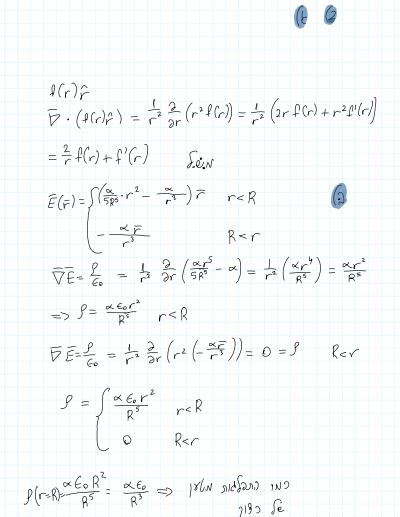 f(r) r̂
∇̄ · (f(r) r̂) = 1/r² ∂/∂r (r² f(r)) = 1/r² (2r f(r) + r² f'(r))
= 2/r f(r) + f'(r)
Ē(r̄) = { (α/5R⁵ · r² − α/r³) r̄ r<R
− α r̄/r³ R<r
∇̄Ē = ρ/ε₀ = 1/r² ∂/∂r (αr⁵/5R⁵ − α) = 1/r² (αr⁴/R⁵) = αr²/R⁵
=> ρ = αε₀r²/R⁵ r<R
∇̄ Ē = ρ/ε₀ = 1/r² ∂/∂r (r² (− αr̄/r³)) = 0 = ρ R<r
ρ = { αε₀r²/R⁵ r<R
0 R<r
ρ(r=R) = αε₀R²/R⁵ = αε₀/R³ => כמו התפלגות מטען
של כדור